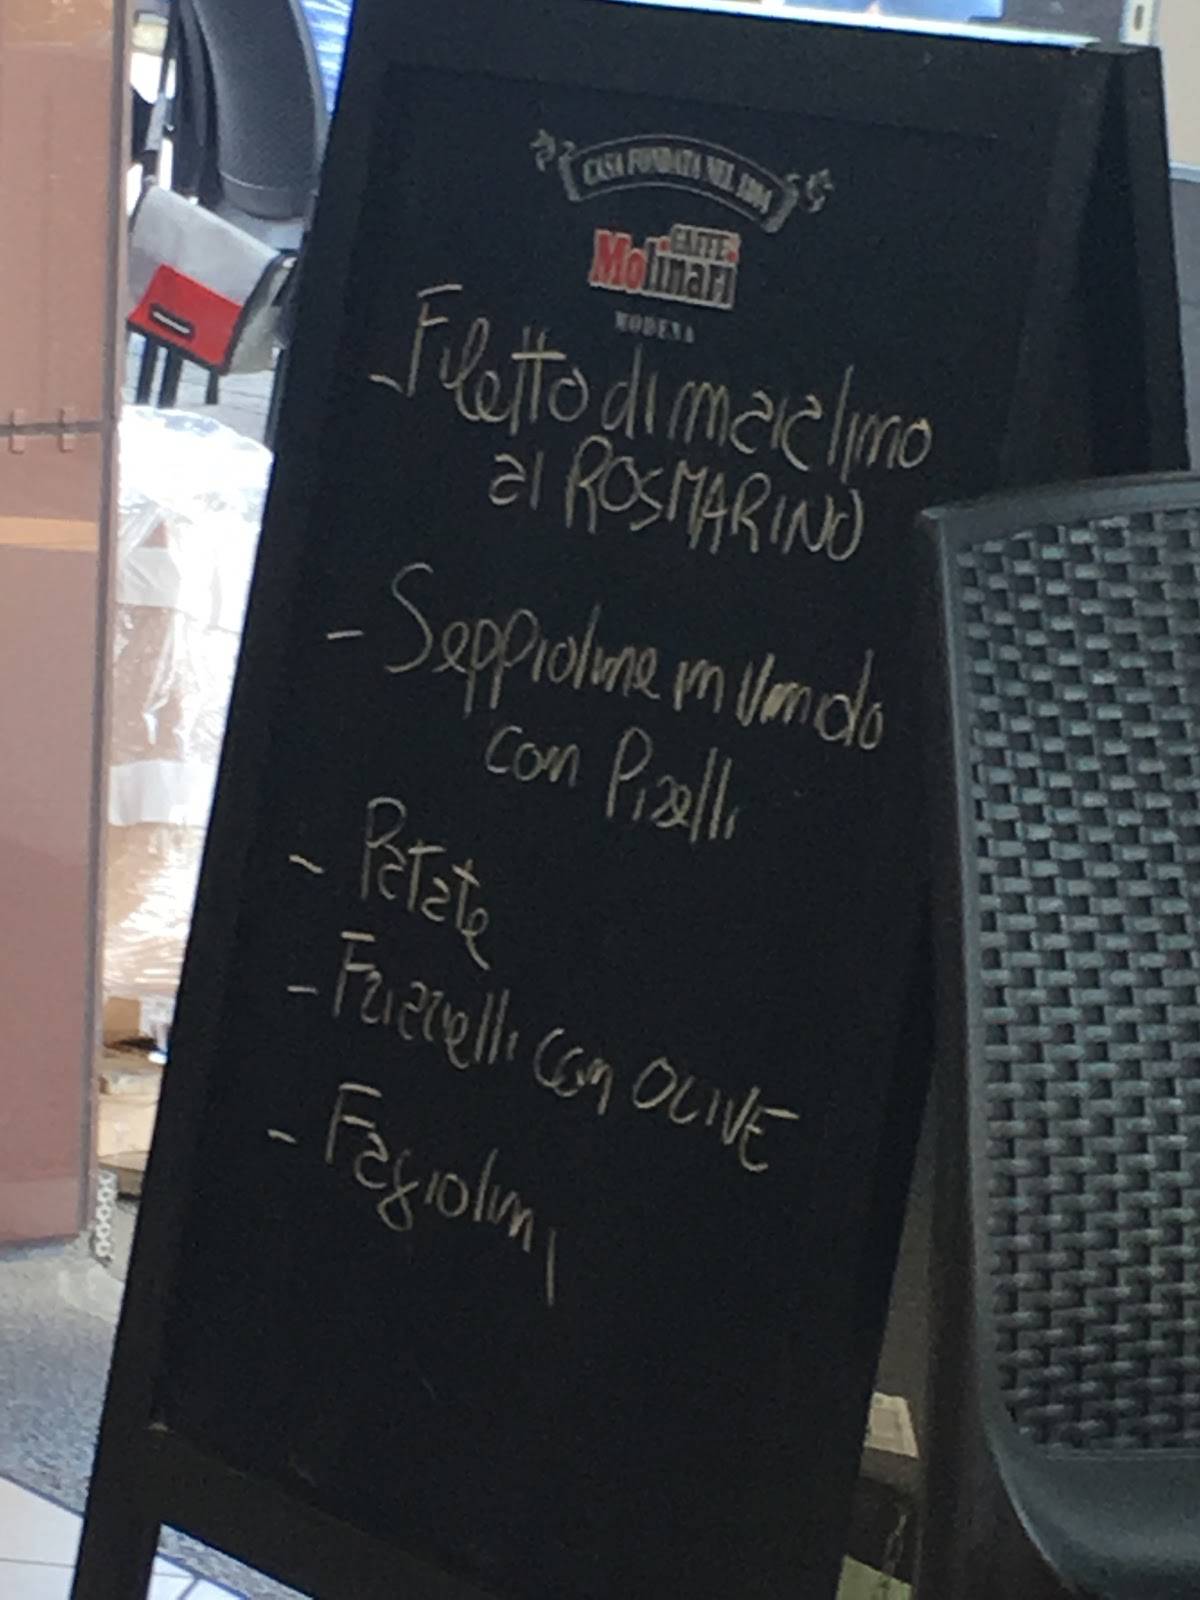 CASA FONDATA NEL 1804
CAFFE'
Molinari
MODENA
- Filetto di maialino
al ROSMARINO
- Seppioline in Umido
con Piselli
- Patate
- Frizzelli con OLIVE
- Fagiolini